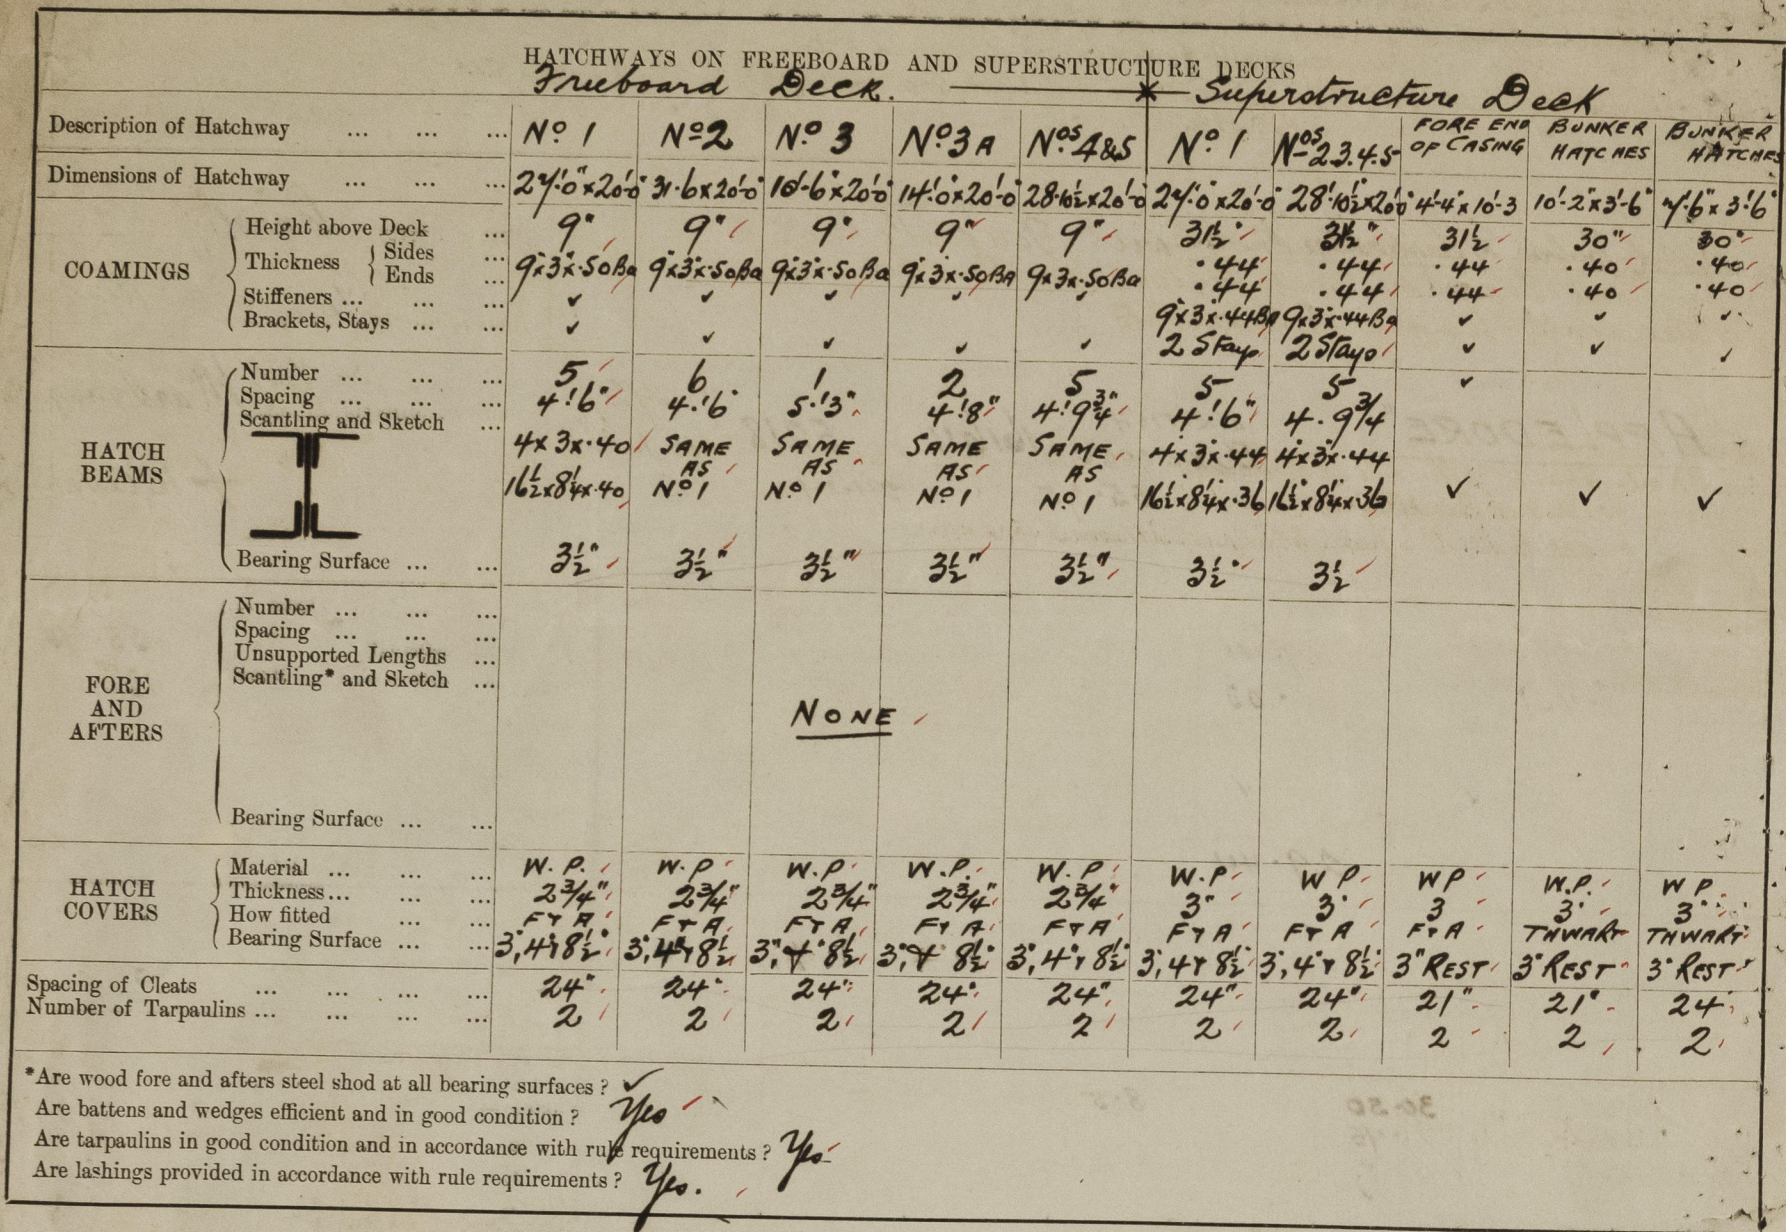 HATCHWAYS ON FREEBOARD AND SUPERSTRUCTURE DECKS
Freeboard Deck. Superstructure Deck
Description of Hatchway ... ... ... No 1 No 2 No 3 No 3A Nos 4&5 No 1 Nos 2.3.4.5 FORE END OF CASING BUNKER HATCHES BUNKER HATCHES
Dimensions of Hatchway ... ... ... 27'.0"x20'-0" 31-6x20'-0" 10'-6"x20'-0" 14'.0"x20'-0" 28-10½x20'-0 27'.0"x20'-0" 28'.10½"x20'0" 4'-4"x10'-3 10'-2"x3'-6" 7'.6"x3'.6"
COAMINGS
Height above Deck ... 9" 9" 9" 9" 9" 31½" 31½" 31½ 30" 30"
Thickness Sides ... 9"x3"x.50 Ba 9"x3"x.50 Ba 9"x3"x.50 Ba 9"x3"x.50 Ba 9x3x.50 Ba .44 .44 .44 .40 .40
Ends ... .44 .44 .44 .40 .40
Stiffeners ... ... ... ✓ ✓ ✓ ✓ ✓ 9"x3"x.44 Ba 9"x3"x.44 Ba ✓ ✓ ✓
Brackets, Stays ... ... ✓ ✓ ✓ ✓ ✓ 2 Stays 2 Stays ✓ ✓ ✓
HATCH BEAMS
Number ... ... ... 5 6 1 2 5 5 5 ✓
Spacing ... ... ... 4'.6" 4.'6" 5.'3" 4'.8" 4'.9¾" 4'.6" 4.9¾
Scantling and Sketch ... 4x3x.40 SAME SAME SAME SAME 4"x3"x.44 4"x3"x.44
AS AS AS AS
16½x8¼x.40 No 1 No 1 No 1 No 1 16½"x8¼"x.36 16½"x8¼"x.36 ✓ ✓ ✓
Bearing Surface ... ... 3½" 3½" 3½" 3½" 3½" 3½" 3½
FORE AND AFTERS
Number ... ... ...
Spacing ... ... ...
Unsupported Lengths ...
Scantling* and Sketch ...
NONE
Bearing Surface ... ...
HATCH COVERS
Material ... ... ... W.P. W.P W.P W.P. W.P W.P W P W P W.P. W P.
Thickness ... ... ... 2¾" 2¾" 2¾" 2¾" 2¾" 3" 3" 3 3" 3"
How fitted ... ... F & A F & A F & A F & A F & A F & A F & A F & A THWART THWART
Bearing Surface ... ... 3",4"&8½" 3",4"&8½ 3",4"8½ 3",4 8½" 3",4"&8½" 3",4&8½" 3",4"&8½" 3" REST 3" REST 3" REST
Spacing of Cleats ... ... ... ... 24" 24" 24" 24" 24" 24" 24" 21" 21" 24
Number of Tarpaulins ... ... ... ... 2 2 2 2 2 2 2 2 2 2
*Are wood fore and afters steel shod at all bearing surfaces? ✓
Are battens and wedges efficient and in good condition? Yes
Are tarpaulins in good condition and in accordance with rule requirements? Yes
Are lashings provided in accordance with rule requirements? Yes.